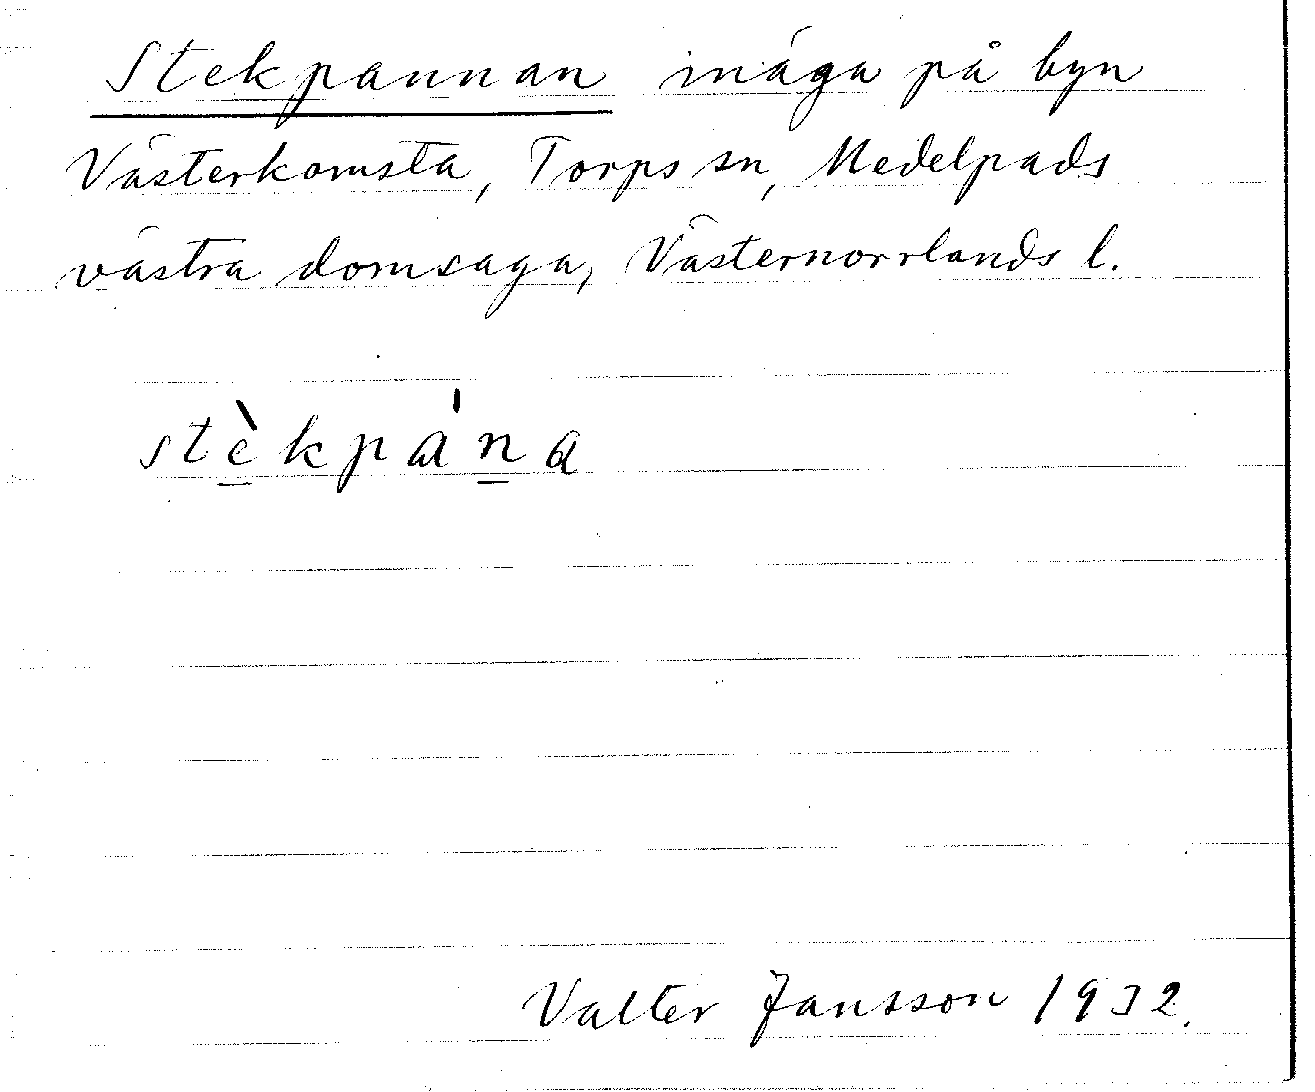 Stekpannan inäga på byn
Västerkomsta, Torps sn, Medelpads
västra domsaga, Västernorrlands l.
stèkpána
Valter Jansson 1932.